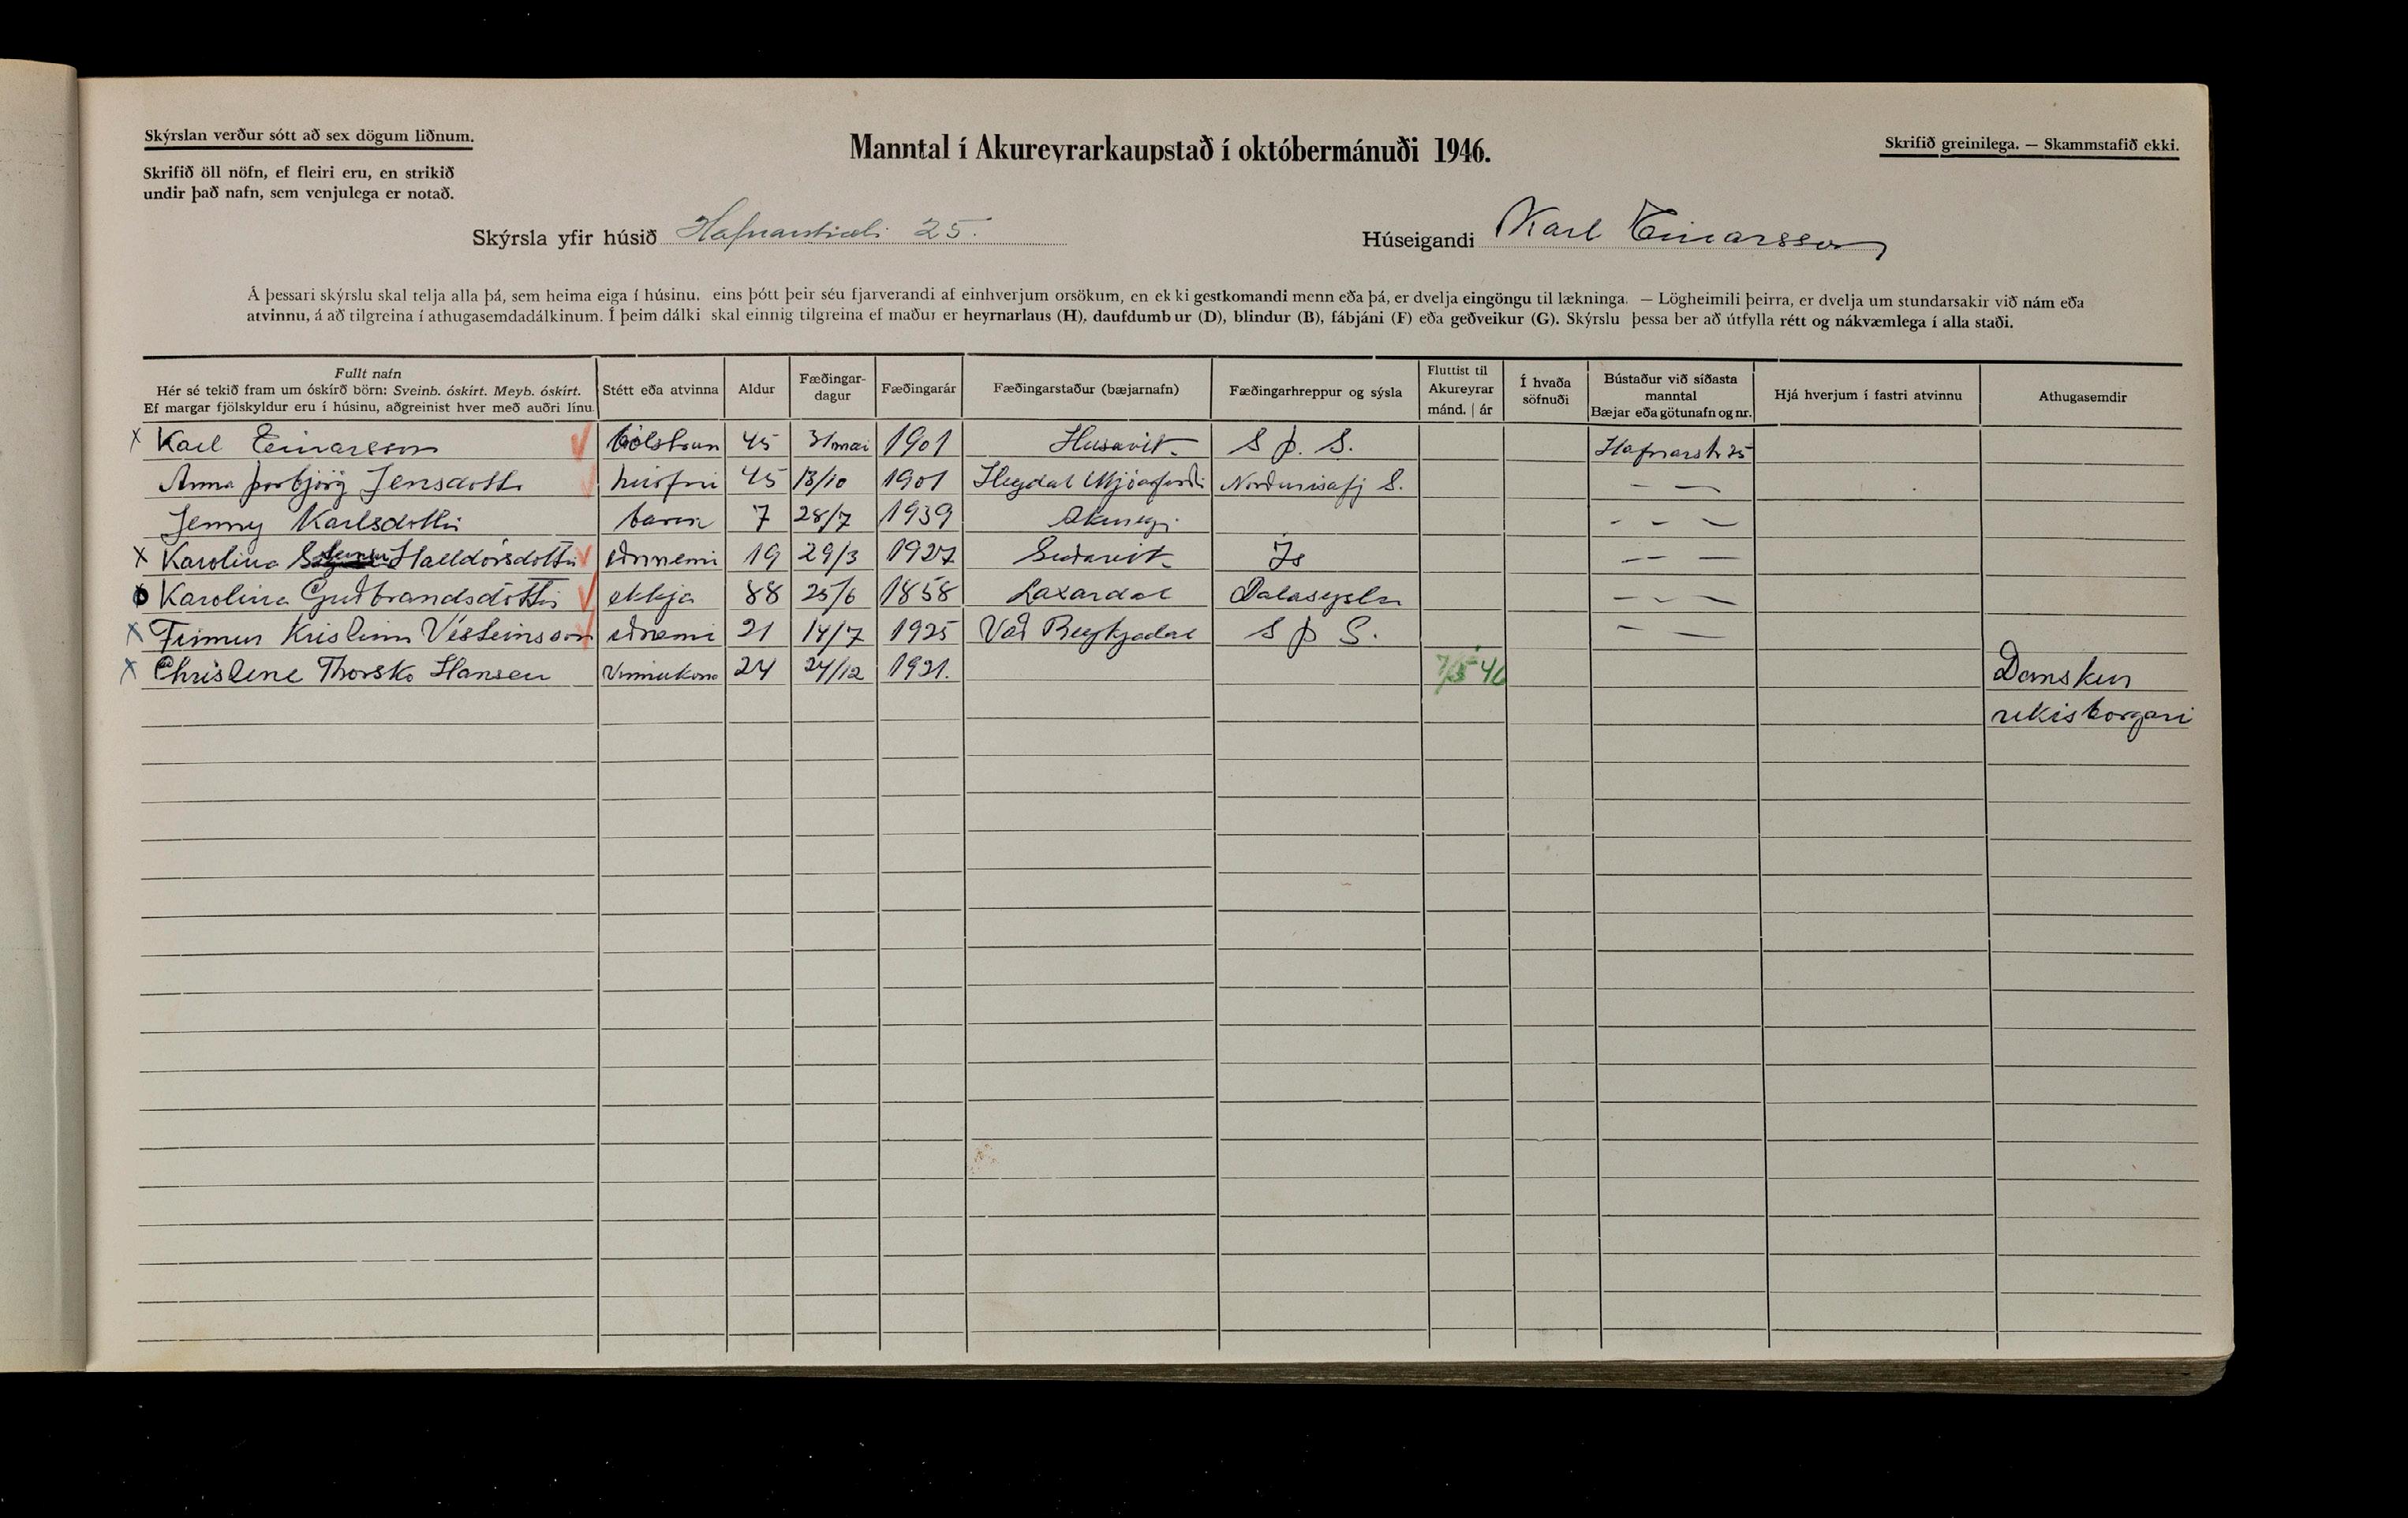 Skýrslan verður sótt að sex dögum liðnum.
Skrifið öll nöfn, ef fleiri eru, en strikið
undir það nafn, sem venjulega er notað.
Manntal í Akureyrarkaupstað í októbermánuði 1946.
Skrifið greinilega. — Skammstafið ekki.
Skýrsla yfir húsið Hafnarstræti 25.
Húseigandi Karl Einarsson
Á þessari skýrslu skal telja alla þá, sem heima eiga í húsinu, eins þótt þeir séu fjarverandi af einhverjum orsökum, en ekki gestkomandi menn eða þá, er dvelja eingöngu til lækninga. — Lögheimili þeirra, er dvelja um stundarsakir við nám eða
atvinnu, á að tilgreina í athugasemdadálkinum. Í þeim dálki skal einnig tilgreina ef maður er heyrnarlaus (H), daufdumbur (D), blindur (B), fábjáni (F) eða geðveikur (G). Skýrslu þessa ber að útfylla rétt og nákvæmlega í alla staði.
Fullt nafn
Hér sé tekið fram um óskírð börn: Sveinb. óskírt. Meyb. óskírt.
Ef margar fjölskyldur eru í húsinu, aðgreinist hver með auðri línu.
Stétt eða atvinna
Aldur
Fæðingar-
dagur
Fæðingarár
Fæðingarstaður (bæjarnafn)
Fæðingarhreppur og sýsla
Fluttist til
Akureyrar
mánd. | ár
Í hvaða
söfnuði
Bústaður við síðasta
manntal
Bæjar eða götunafn og nr.
Hjá hverjum í fastri atvinnu
Athugasemdir
x Karl Einarsson bólstrun 45 31 mai 1901 Husavik S Þ. S. Hafnarstr 25
Anna Þorbjörg Jensdottir húsfrú 45 13/10 1901 Mjóafirði Norðurisafj S. — —
Jenny Karlsdottir barn 7 28/7 1939 Akureyri - - —
x Karolina Halldórsdottir iðnnemi 19 29/3 1927 Suðavik Is — — —
Karolina Guðbrandsdóttir ekkja 88 25/6 1858 Laxardal Dalasyslu — — —
x Kristinn Vésteinsson iðnemi 21 14/7 1925 Reykjadal S Þ S. — —
x Christene Thorsko Hansen Vinnukona 24 24/12 1921. 7/5 46 Danskur
rikisborgari